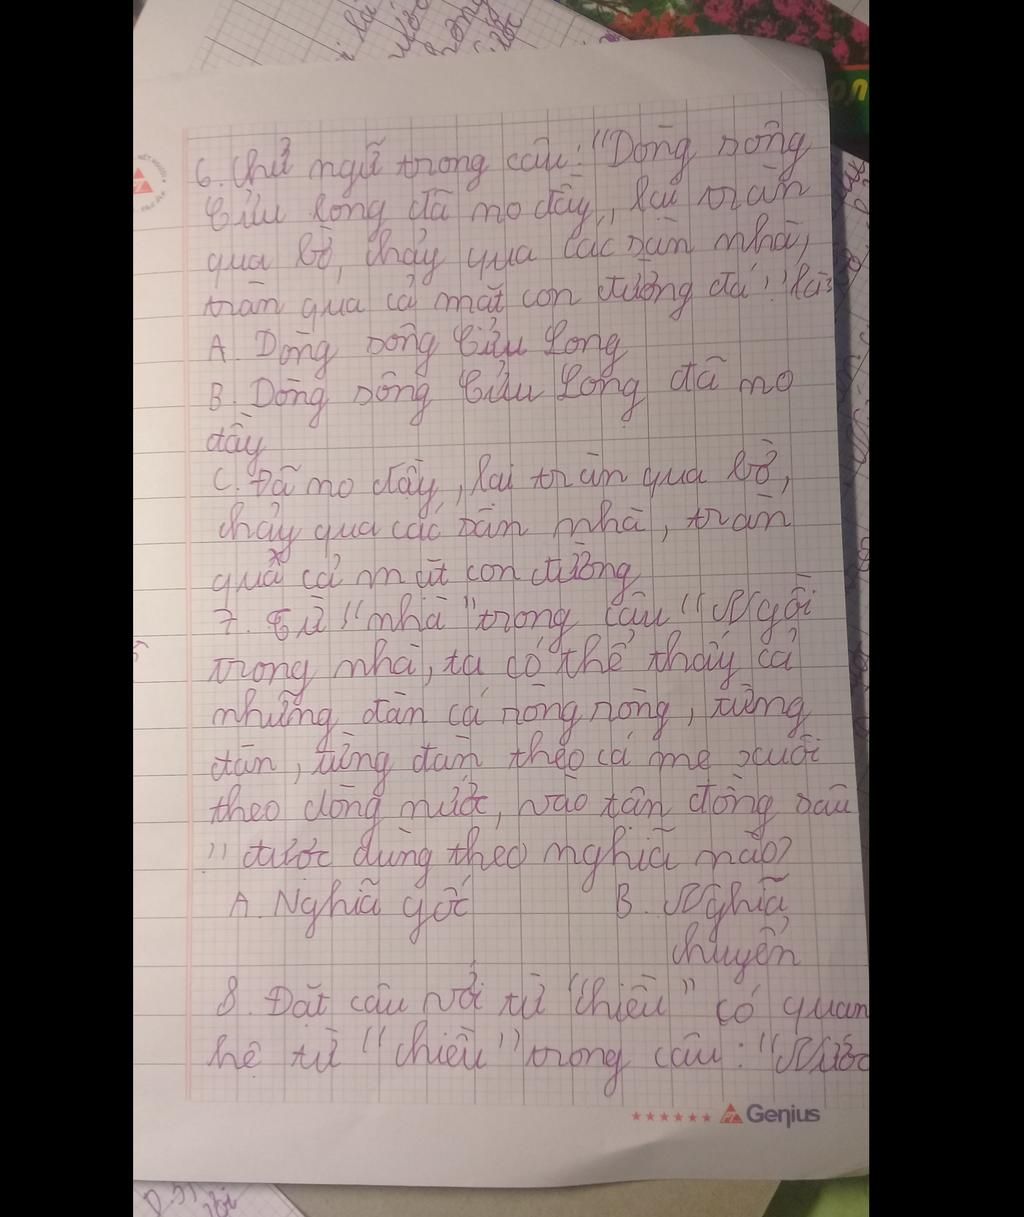 6. Chủ ngữ trong câu: "Dòng sông
Cửu Long đã no đầy, lại tràn
qua bờ, chảy qua các sàn nhà,
tràn qua cả mặt con đường đá" là:
A. Dòng sông Cửu Long
B. Dòng sông Cửu Long đã no
đầy
C. Đã no đầy, lại tràn qua bờ,
chảy qua các sân nhà, tràn
qua cả mặt con đường
7. Từ "nhà" trong câu "Ngồi
trong nhà, ta có thể thấy cả
những đàn cá ròng ròng, từng
đàn, từng đàn theo cá mẹ xuôi
theo dòng nước, vào tận đồng sâu
" được dùng theo nghĩa nào?
A. Nghĩa gốc B. Nghĩa
chuyển
8. Đặt câu với từ "chiều" có quan
hệ từ "chiều" trong câu: "Nước
Genius